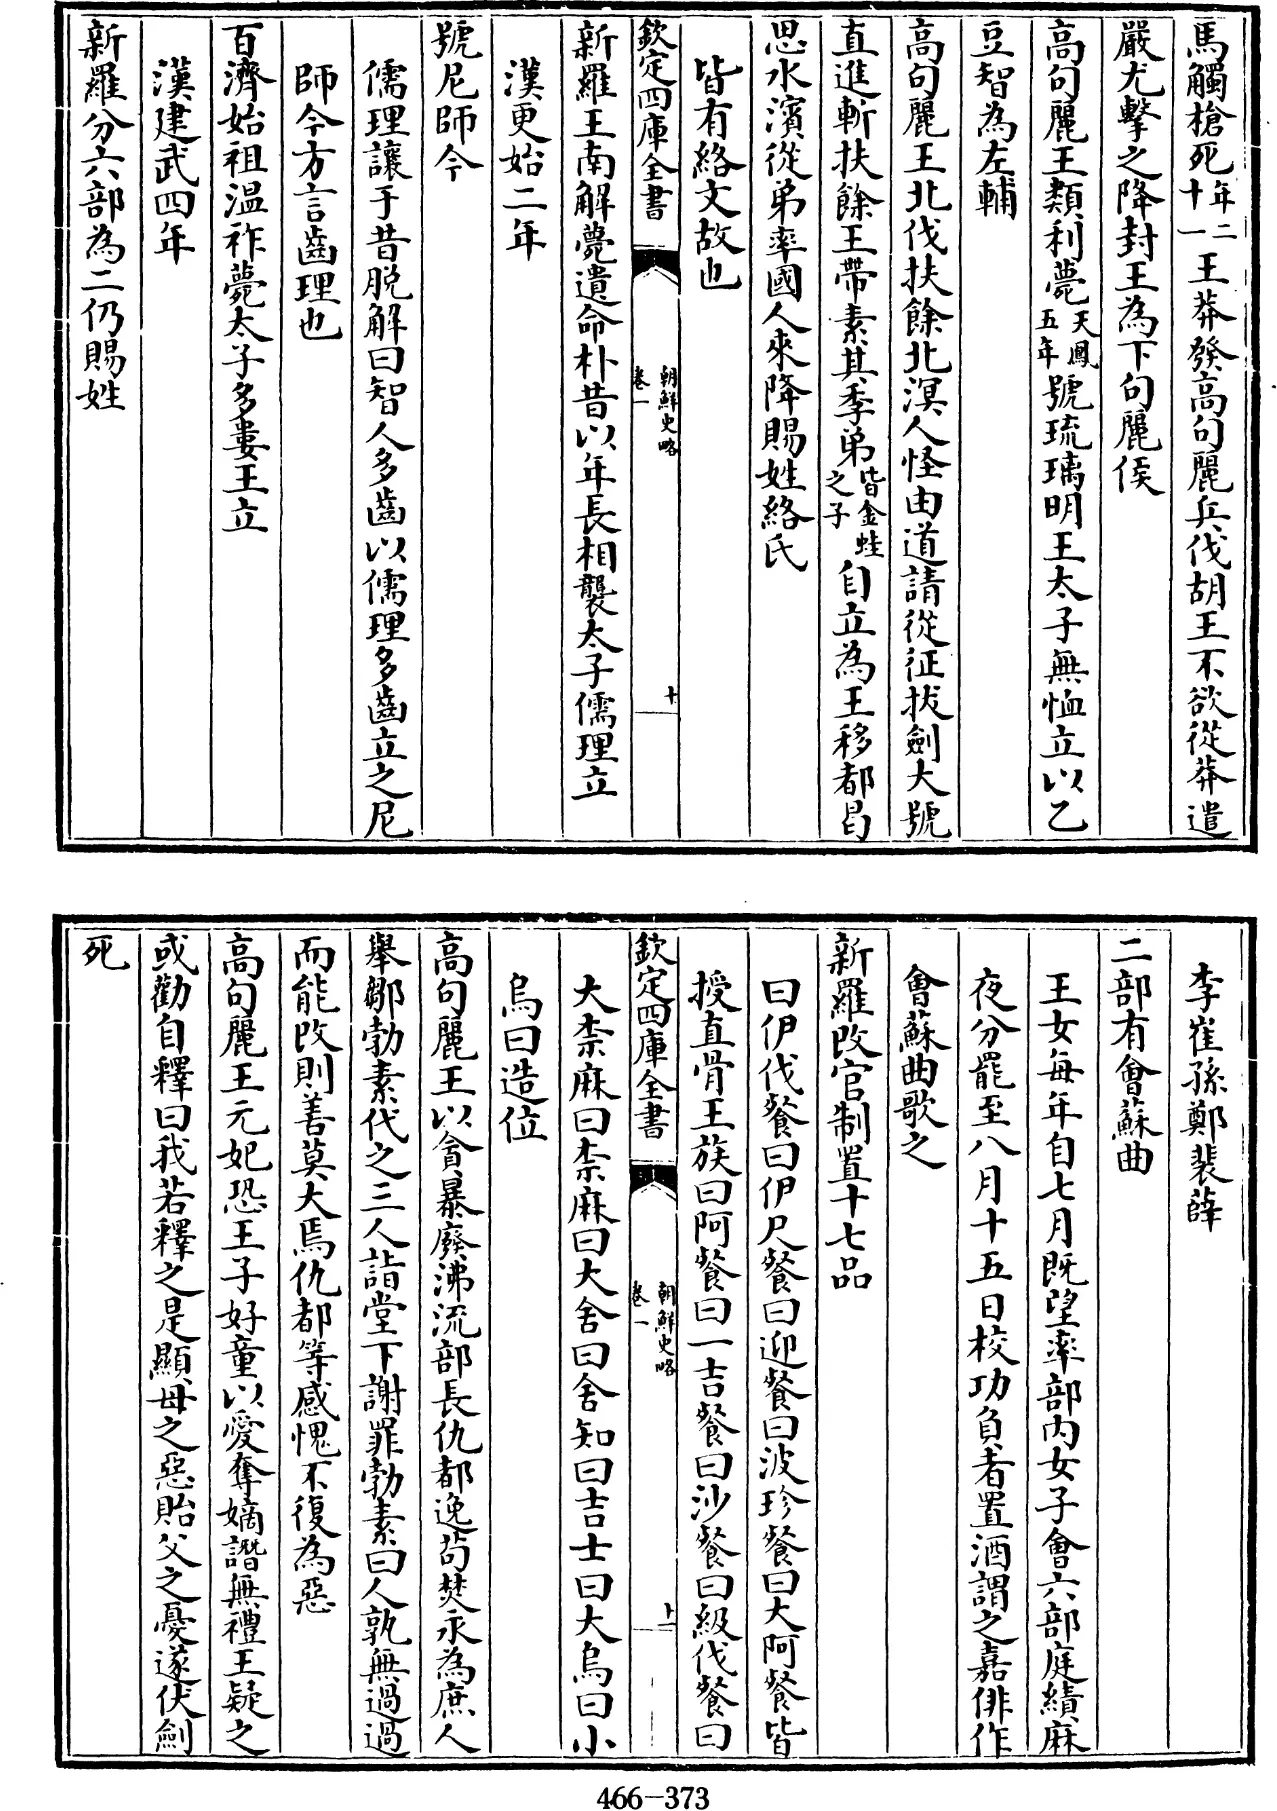 馬觸槍死十一年二王莽發高句麗兵伐胡王不欲從莽遣
嚴尤擊之降封王為下句麗侯
高句麗王類利薨天鳳五年號琉璃明王太子無恤立以乙
豆智為左輔
高句麗王北伐扶餘北溟人怪由道請從征拔劍大號
直進斬扶餘王帶素其季弟皆金蛙之子自立為王移都曷
思水濱從弟率國人來降賜姓絡氏
皆有絡文故也
欽定四庫全書
朝鮮史略
卷一
十
新羅王南解薨遺命朴昔以年長相襲太子儒理立
漢更始二年
號尼師今
儒理讓于昔脫解曰智人多齒以儒理多齒立之尼
師今方言齒理也
百濟始祖温祚薨太子多婁王立
漢建武四年
新羅分六部為二仍賜姓
李崔孫鄭裴薛
二部有會蘇曲
王女每年自七月既望率部内女子會六部庭績麻
夜分罷至八月十五日校功負者置酒謂之嘉俳作
會蘇曲歌之
新羅改官制置十七品
曰伊伐餐曰伊尺餐曰迎餐曰波珍餐曰大阿餐皆
授直骨王族曰阿餐曰一吉餐曰沙餐曰級伐餐曰
欽定四庫全書
朝鮮史略
卷一
十一
大柰麻曰柰麻曰大舍曰舍知曰吉士曰大烏曰小
烏曰造位
高句麗王以貪暴廢沸流部長仇都逸苟焚永為庶人
舉鄒勃素代之三人詣堂下謝罪勃素曰人孰無過過
而能改則善莫大焉仇都等感愧不復為惡
高句麗王元妃恐王子好童以愛奪嫡譖無禮王疑之
或勸自釋曰我若釋之是顯母之惡貽父之憂遂伏劍
死
466-373